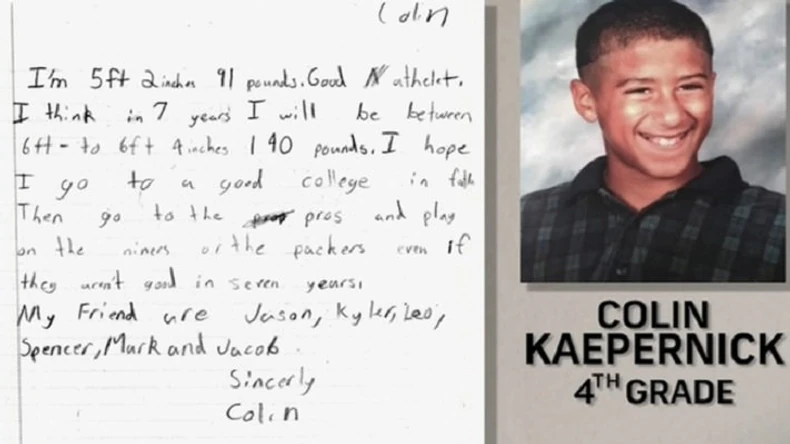 Colin
I'm 5ft 2 inches 91 pounds. Good athelet.
I think in 7 years I will be between
6ft - to 6ft 4 inches 190 pounds. I hope
I go to a good college in
Then go to the pros and play
on the niners or the packers even if
they aren't good in seven years.
My Friend are Jason, Kyler, Leo,
Spencer, Mark and Jacob
Sincerly
Colin
COLIN
KAEPERNICK
4TH GRADE